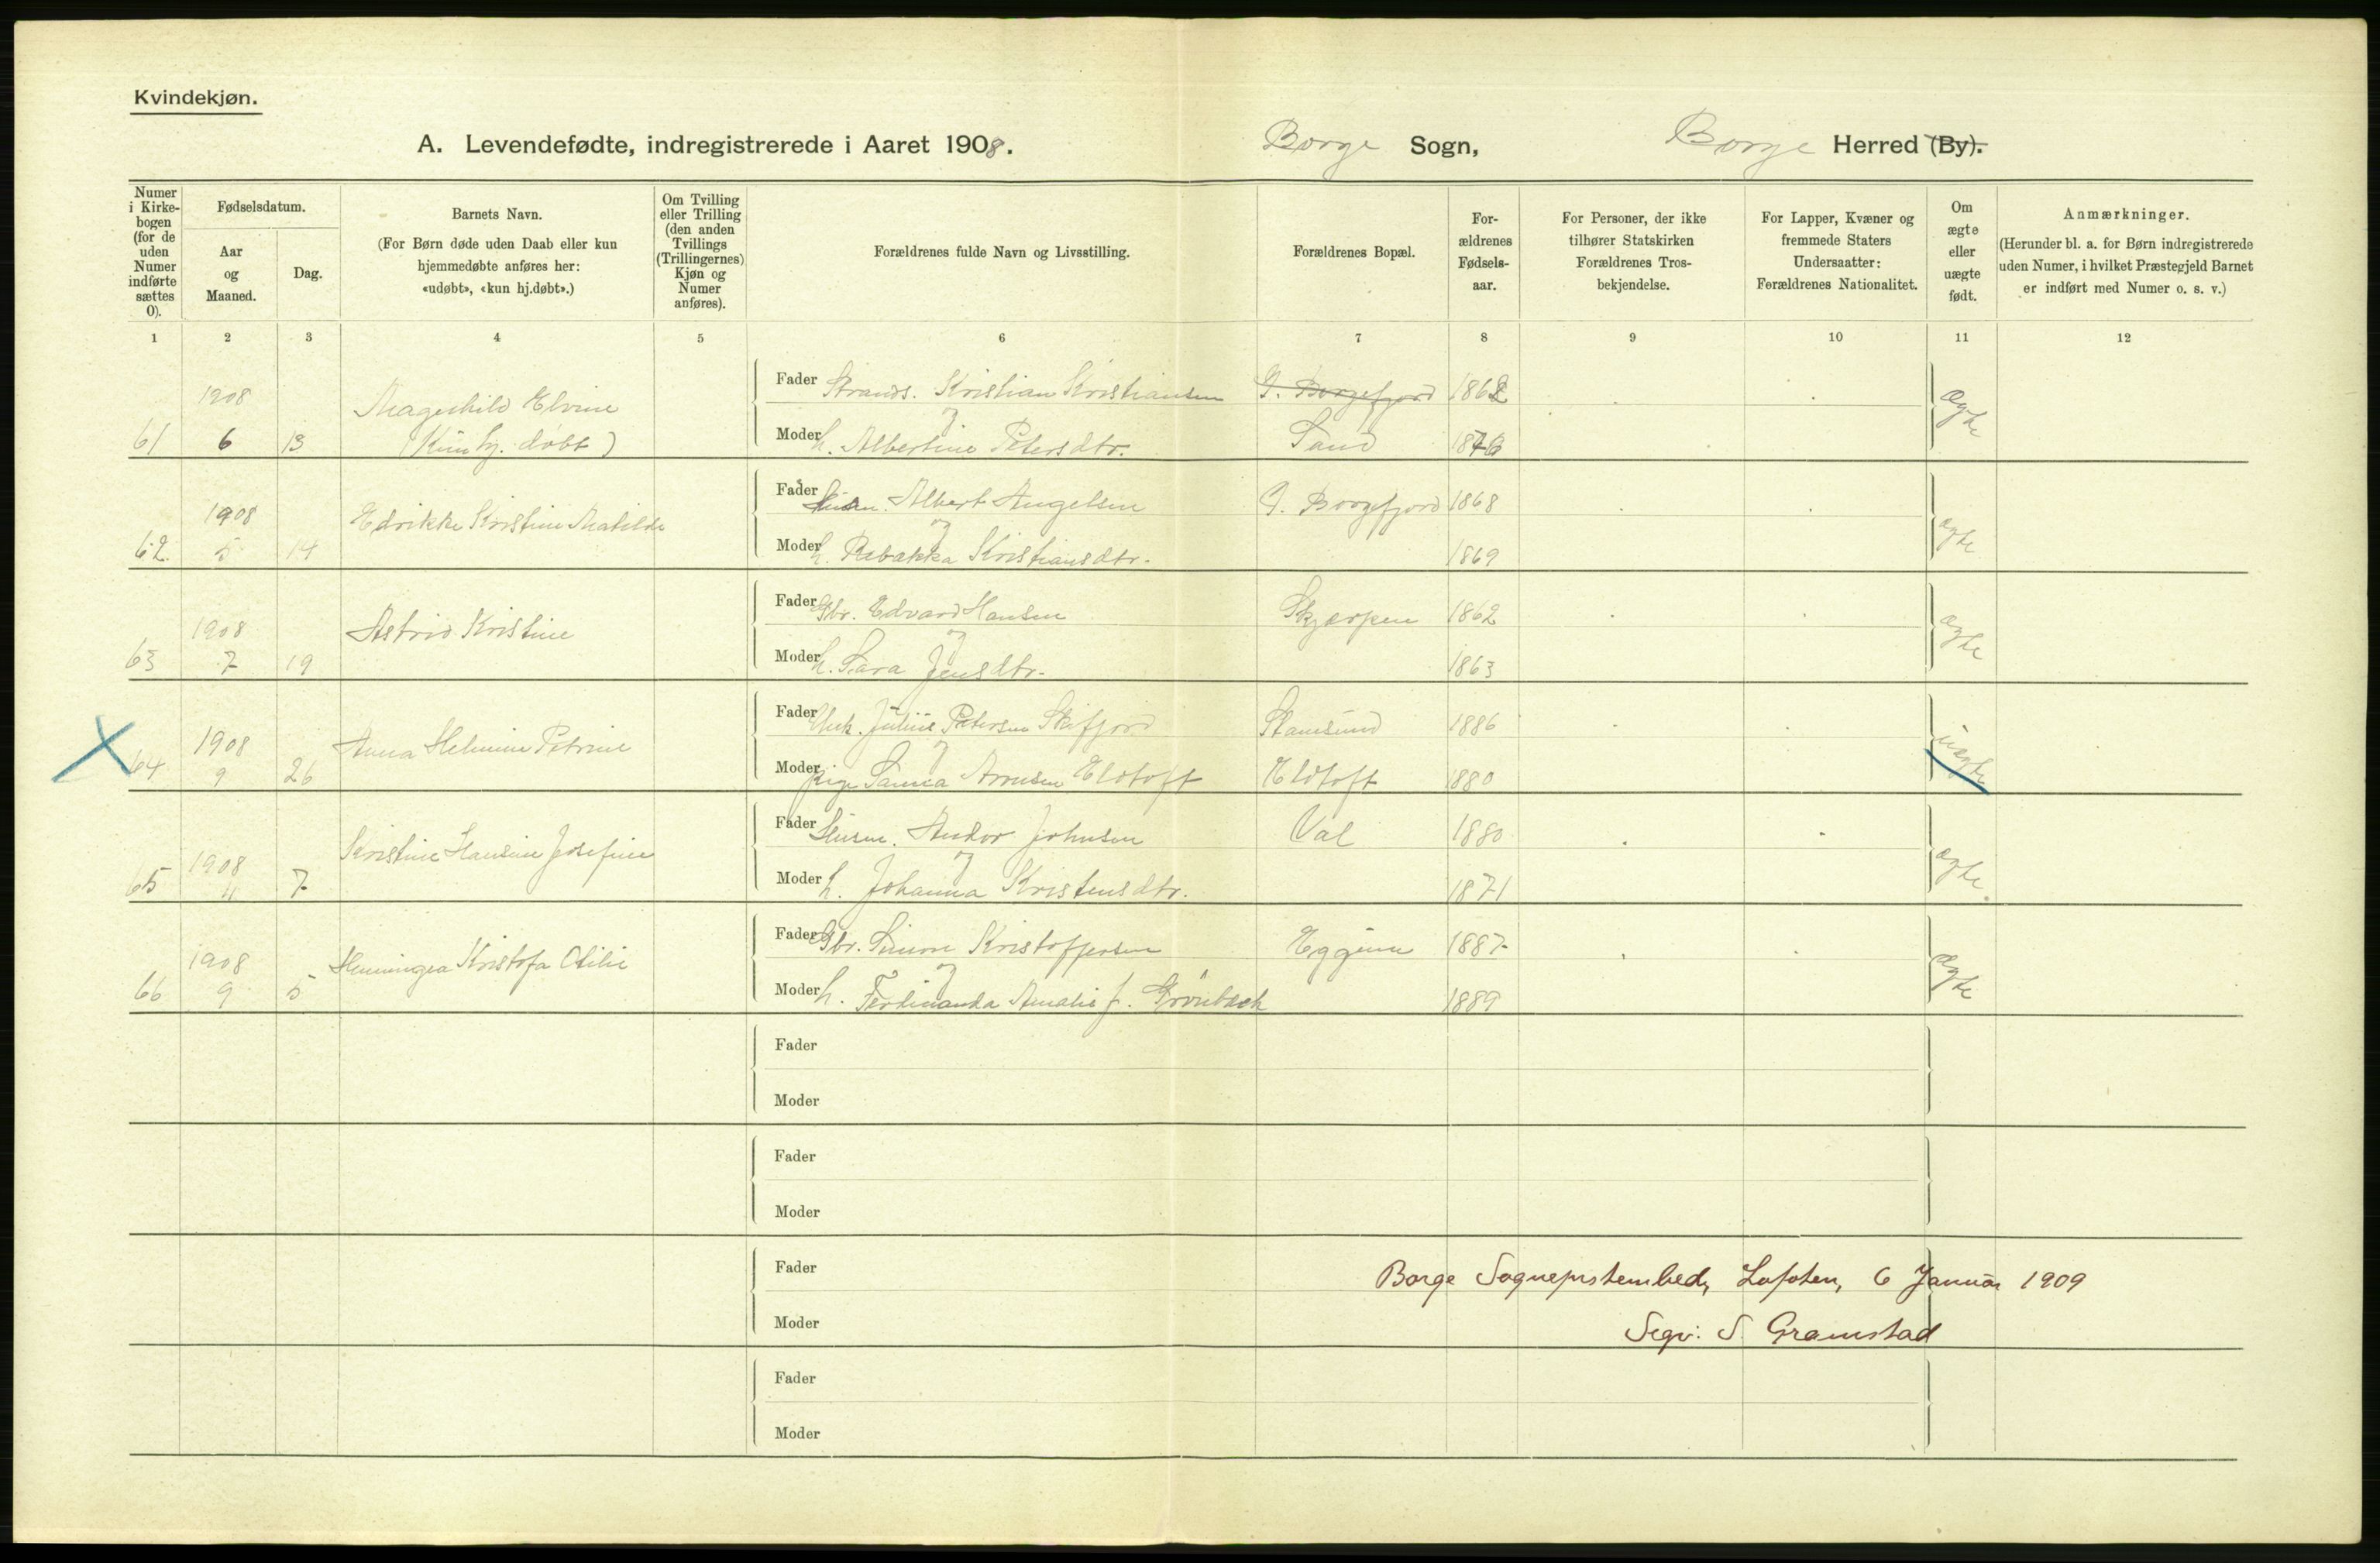 Kvindekjøn.
A. Levendefødte, indregistrerede i Aaret 1908.
Borge Sogn,
Borge Herred (By).
Numer i Kirkebogen (for de uden Numer indførte sættes 0).
Fødselsdatum.
Aar og Maaned.
Dag.
Barnets Navn.
(For Børn døde uden Daab eller kun
hjemmedøbte anføres her:
«udøbt», «kun hj.døbt».)
Om Tvilling eller Trilling (den anden Tvillings (Trillingernes) Kjøn og Numer anføres).
Forældrenes fulde Navn og Livsstilling.
Forældrenes Bopæl.
For-ældrenes Fødsels-aar.
For Personer, der ikke
tilhører Statskirken
Forældrenes Tros-
bekjendelse.
For Lapper, Kvæner og
fremmede Staters
Undersaatter:
Forældrenes Nationalitet.
Om ægte eller uægte født.
Anmærkninger.
(Herunder bl. a. for Børn indregistrerede
uden Numer, i hvilket Præstegjeld Barnet
er indført med Numer o. s. v.)
1 2 3 4 5 6 7 8 9 10 11 12
1908 Fader Strands. Kristian Kristiansen I. Borgefjord 1862
Elvine
61 6 13 (Kun hj. døbt) Moder h. Albertine Petersdtr. Sand ægte
1908 Edrikke Kristine Matilde Fader Albert Angelsen I. Borgfjord 1868
62. 5 14 Moder h. Rebakka Kristiansdtr. 1869 ægte
1908 Astrid Kristine Fader Gbr. Edvard Hansen Skjerpen 1862
63 7 19 Moder h. Sara Jensdtr. 1863 ægte
1908 Anna Helmine Petrine Fader Julius Petersen Stamsund 1886
64 9 26 Moder Pige Arntsen Eltoft Eltoft 1880 uægte
1908 Kristine Hansine Josefine Fader Andor Johnsen Val 1880
65 4 7 Moder h. Johanna Kristensdtr. 1871 ægte
1908 Henningea Kristofa Otilie Fader Gbr. Simon Kristoffersen Eggum 1887
66 9 5 Moder h. Ferdinanda Amalie f. Grönbæck 1889 ægte
Fader
Moder
Fader
Moder
Fader
Borge Sogneprstembed, Lofoten, 6 Januar 1909
Moder
S. Gramstad
Fader
Moder